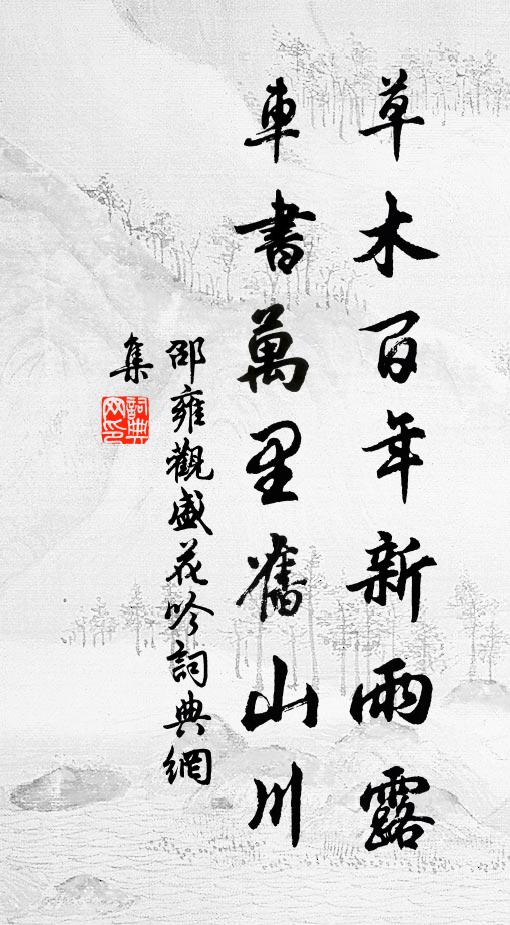 草木百年新雨露
車書萬里舊山川
邵雍觀盛花吟詞典網
集
詞典
网印